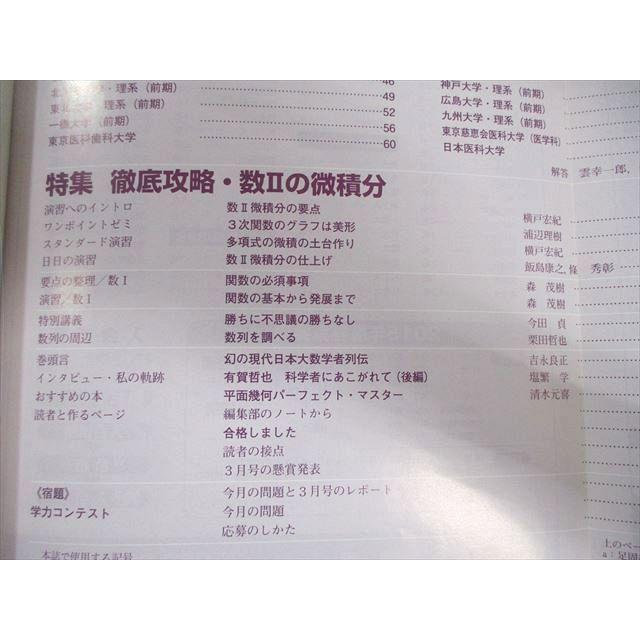 北 ・理系（前期） 46
東北 ・理系（前期） 49
一橋大学（前期） 52
56
東京医科歯科大学 60
神戸大学・理系（前期）
広島大学・理系（前期）
九州大学・理系（前期）
東京慈恵会医科大学（医学科）
日本医科大学
解答 雲幸一郎,
特集 徹底攻略・数Ⅱの微積分
演習へのイントロ 数Ⅱ微積分の要点 横戸宏紀
ワンポイントゼミ 3次関数のグラフは美形 浦辺理樹
スタンダード演習 多項式の微積の土台作り 横戸宏紀
日日の演習 数Ⅱ微積分の仕上げ 飯島康之, 條 秀彰
要点の整理／数Ⅰ 関数の必須事項 森 茂樹
演習／数Ⅰ 関数の基本から発展まで 森 茂樹
特別講義 勝ちに不思議の勝ちなし 今田 貞
数列の周辺 数列を調べる 栗田哲也
巻頭言 幻の現代日本大数学者列伝 吉永良正
インタビュー・私の軌跡 有賀哲也 科学者にあこがれて（後編） 塩繁 学
おすすめの本 平面幾何パーフェクト・マスター 清水元喜
読者と作るページ 編集部のノートから
合格しました
読者の接点
3月号の懸賞発表
《宿題》 今月の問題と3月号のレポート
学力コンテスト 今月の問題
応募のしかた
本誌で使用する記号
上のペー
a：足固